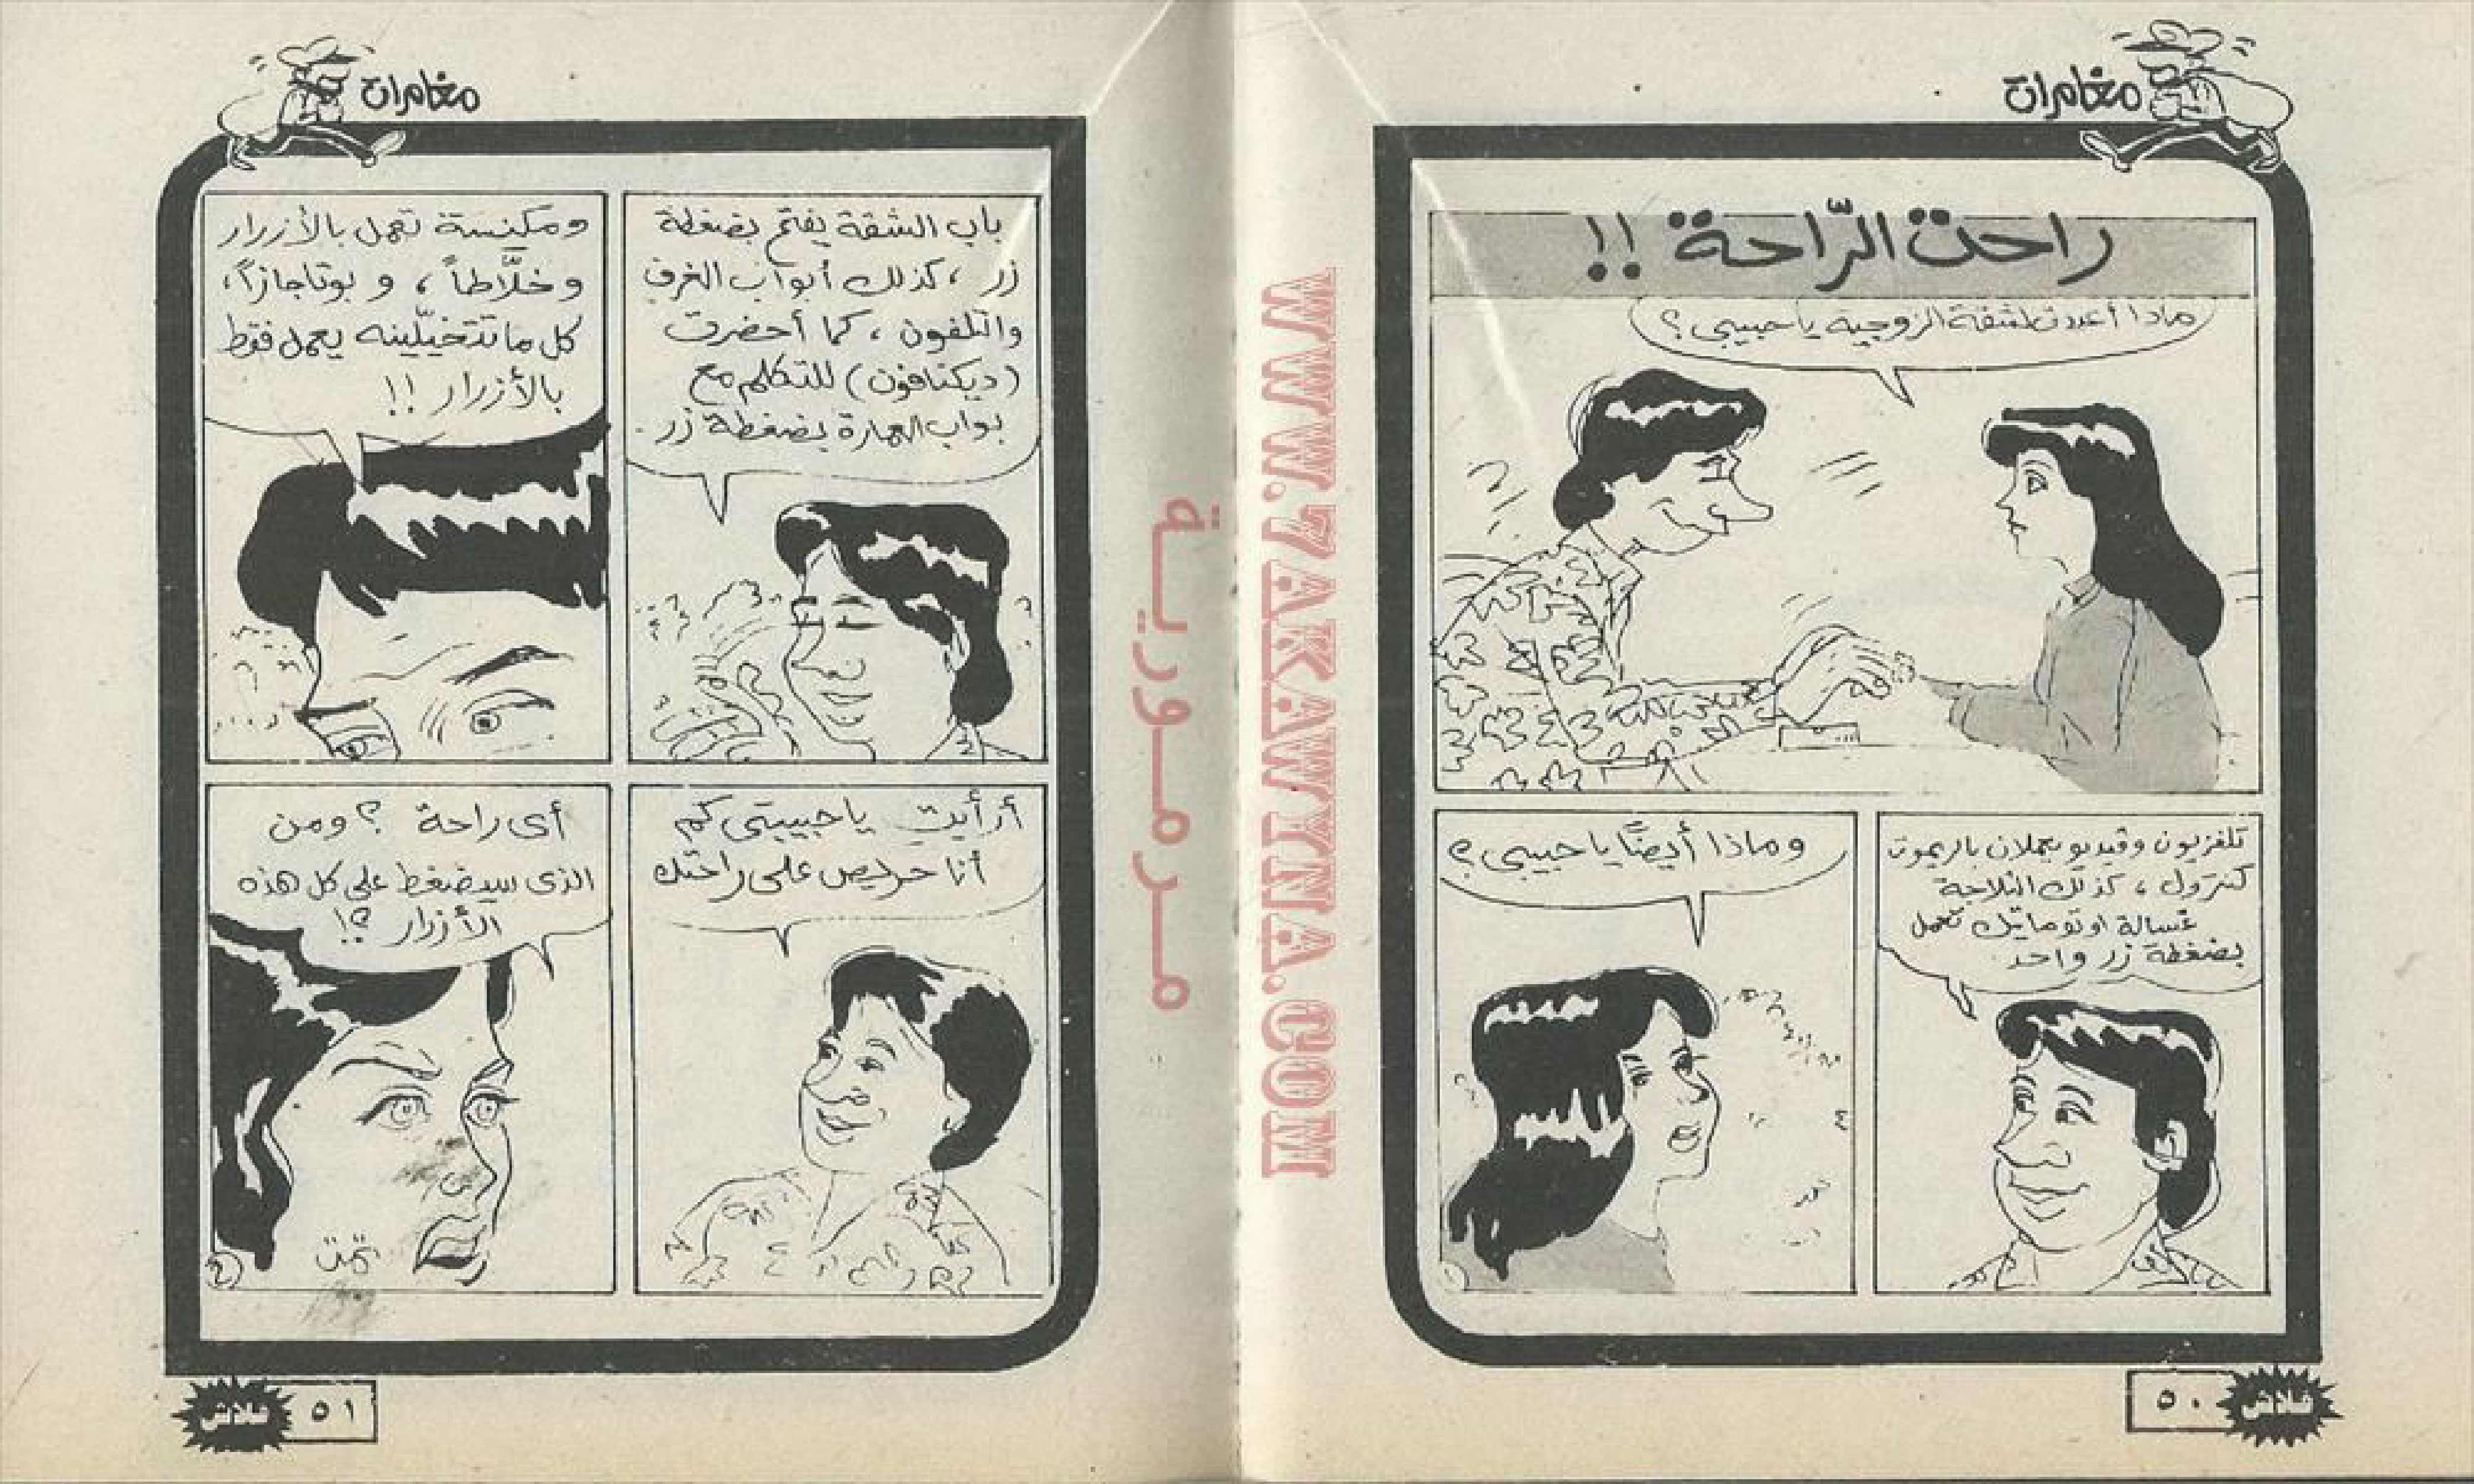 مغامرات
راحت الرّاحة !!
ماذا أعددت لشقة الزوجية يا حبيبي ؟
تلفزيون وفيديو يعملان بالريموت
كنترول ، كذلك الثلاجة
غسالة اوتوماتيك تعمل
بضغطة زر واحد .
وماذا أيضًا يا حبيبي ؟
فلاش
٥٠
مغامرات
باب الشقة يفتح بضغطة
زر ، كذلك أبواب الغرف
والتلفون ، كما أحضرت
(ديكتافون) للتكلم مع
بواب العمارة بضغطة زر .
ومكنسة تعمل بالأزرار
وخلَّاطاً ، و بوتاجازاً ،
كل ما تتخيّلينه يعمل فقط
بالأزرار !!
أرأيت يا حبيبتي كم
أنا حريص على راحتك
أى راحة ؟ ومن
الذى سيضغط على كل هذه
الأزرار ؟!
تمت
٥١
فلاش
مـرمـوريـة
WWW.7AKAWINA.COM